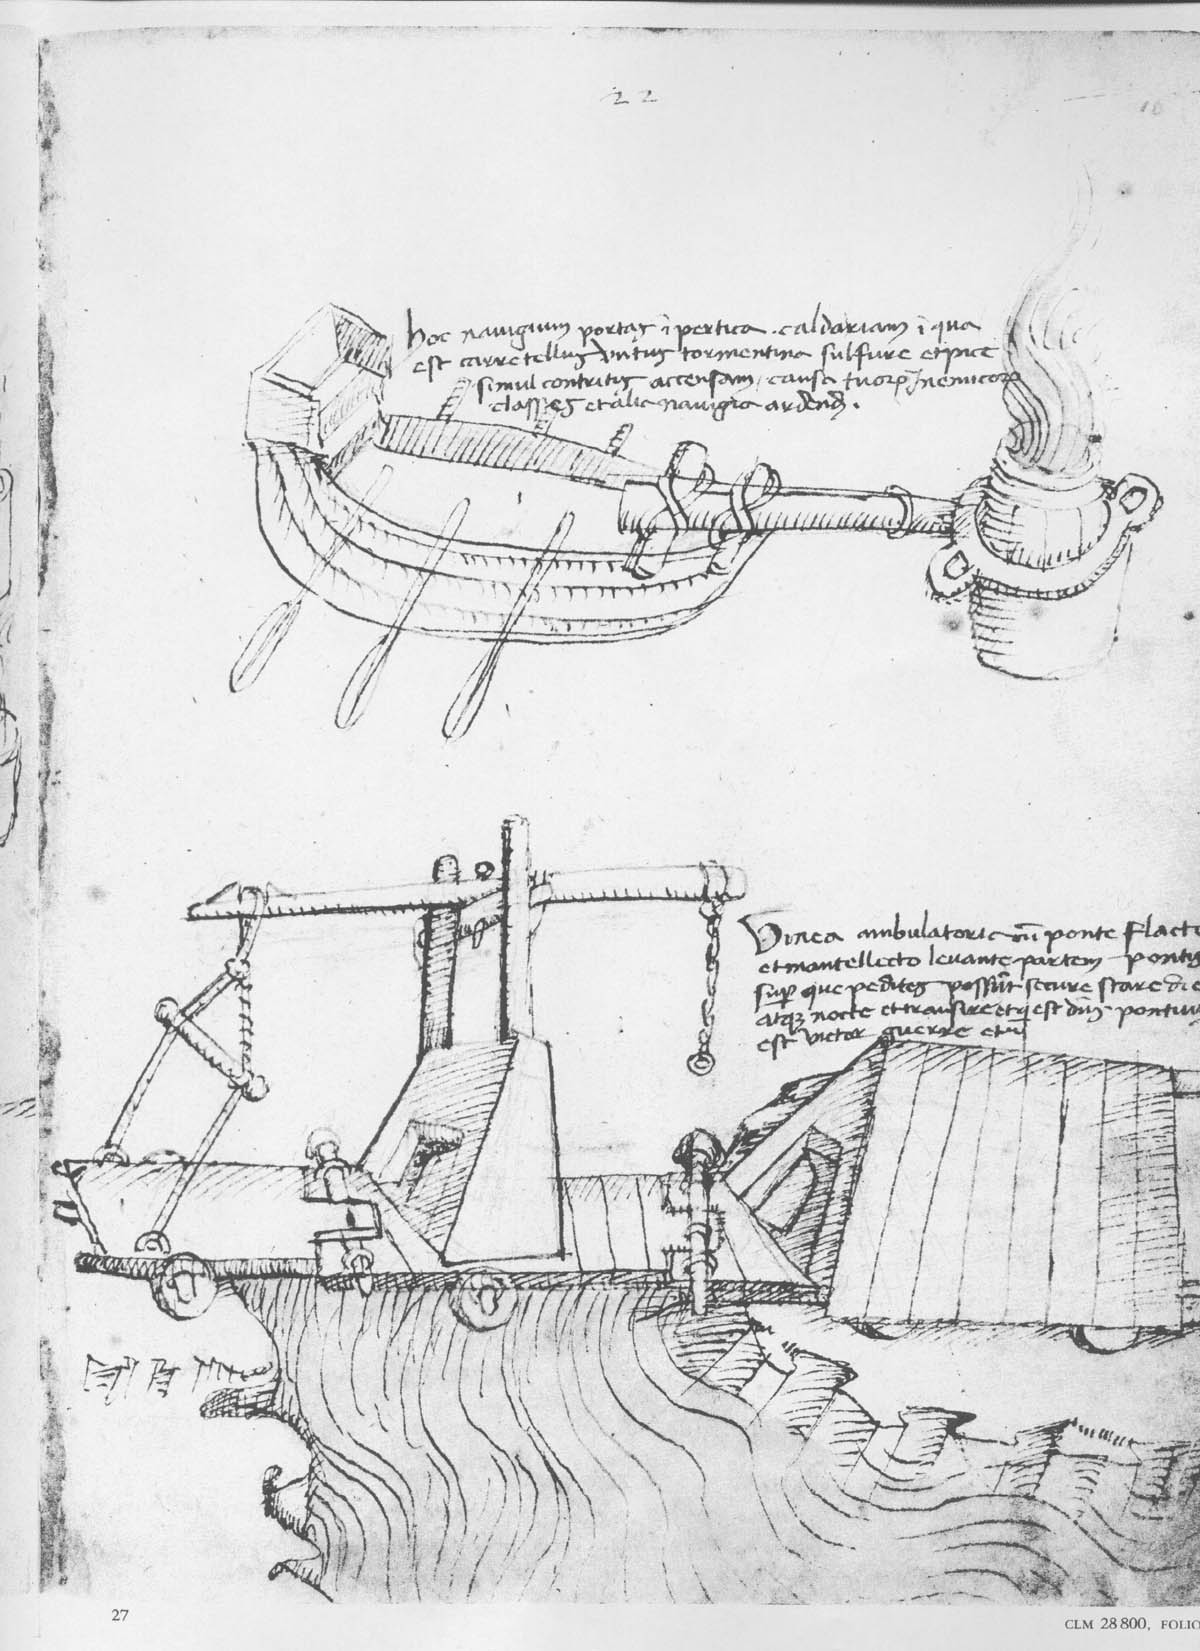 22
10
hoc navigium portat ĩ pertica caldariam ĩ qua
est carretellus vnctus tormentina sulfure et pice
simul contritis accensam causa tuorꝝ Inemicorꝝ
classes et alia navigia ardendi.
Vinea ambulatoria cũ ponte
et mantellecto levante partem pontis
sup que pedites possũt secure stare die
atqꝫ nocte et transire et qi est dñs pontium
est victor guerre
27
CLM 28 800, FOLIO